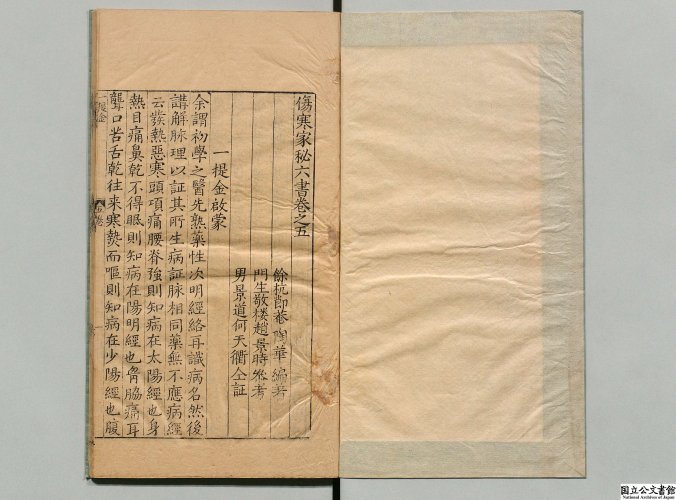 傷寒家秘六書卷之五
餘杭節菴陶華編著
門生敬樓趙景時叅考
男景道何天衢仝証
一提金啟蒙
余謂初學之醫先熟藥性次明經絡再識病名然後
講解脉理以証其所生病証脉相同藥無不應病經
云發熱惡寒頭項痛腰脊強則知病在太陽經也身
熱目痛鼻乾不得眠則知病在陽明經也胷脇痛耳
聾口苦舌乾往来寒熱而嘔則知病在少陽經也腹
一提金
国立公文書館
National Archives of Japan